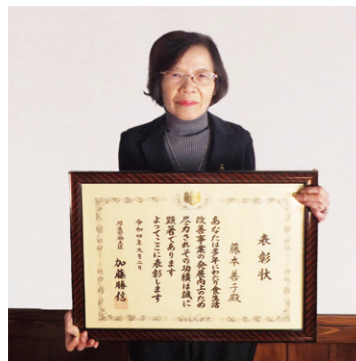 表彰状
藤本善子殿
あなたは多年にわたり食生活
改善事業の発展向上のため
尽力されその功績は誠に
顕著であります
よってここに表彰します
令和四年九月二日
厚生労働大臣
加藤勝信